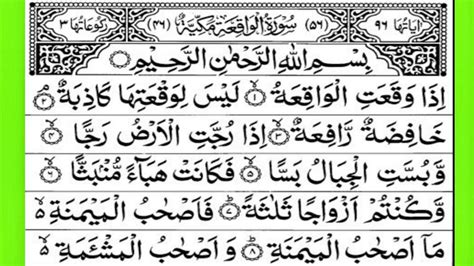 اٰیَاتُهَا ۹۶ (۵۶) سُوْرَةُ الْوَاقِعَةِ مَكِّیَّةٌ (۴۶) رُكُوْعَاتُهَا ۳
بِسْمِ اللّٰهِ الرَّحْمٰنِ الرَّحِیْمِ
اِذَا وَقَعَتِ الْوَاقِعَةُ ۙ‏﴿۱﴾ لَیْسَ لِوَقْعَتِهَا كَاذِبَةٌ ۘ‏﴿۲﴾
خَافِضَةٌ رَّافِعَةٌ ۙ‏﴿۳﴾ اِذَا رُجَّتِ الْاَرْضُ رَجًّا ۙ‏﴿۴﴾
وَّبُسَّتِ الْجِبَالُ بَسًّا ۙ‏﴿۵﴾ فَكَانَتْ هَبَآءً مُّنْۢبَثًّا ۙ‏﴿۶﴾
وَّكُنْتُمْ اَزْوَاجًا ثَلٰثَةً ؕ‏﴿۷﴾ فَاَصْحٰبُ الْمَیْمَنَةِ ۙ۬
مَاۤ اَصْحٰبُ الْمَیْمَنَةِ ؕ‏﴿۸﴾ وَ اَصْحٰبُ الْمَشْـَٔمَةِ ۙ۬